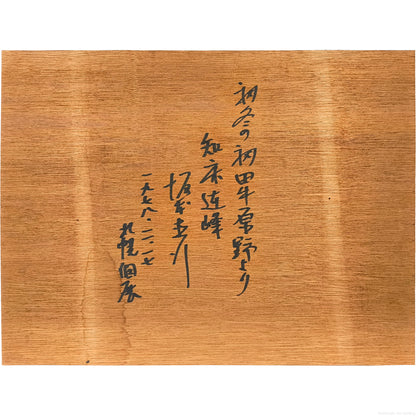 初冬の初田牛原野より
知床連峰
坂本直行
一九七八・二・一七
札幌個展